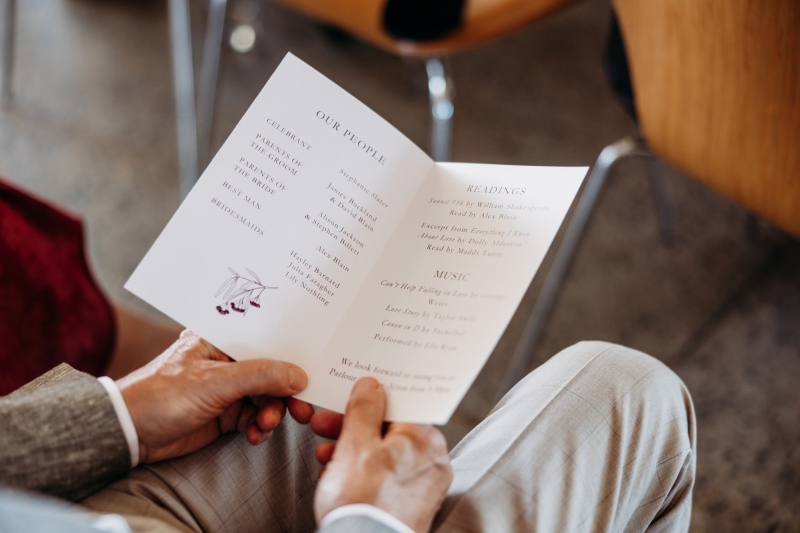 OUR PEOPLE
CELEBRANT
Stephanie Slater
PARENTS OF
THE GROOM
Janice Rockland
& David Blain
PARENTS OF
THE BRIDE
Alison Jackson
& Stephen Billett
BEST MAN
Alex Blain
BRIDESMAIDS
Hayley Barnard
Julia Faragher
Lily Nothling
READINGS
Sonnet 116 by William Shakespeare
Read by Alex Blain
Excerpt from Everything I Know
About Love by Dolly Alderton
Read by Maddy
MUSIC
Can't Help Falling in Love by
Love Story by Taylor Swift
Canon in D by Pachelbel
Performed by Ella
We look forward to seeing you at
Parlour from